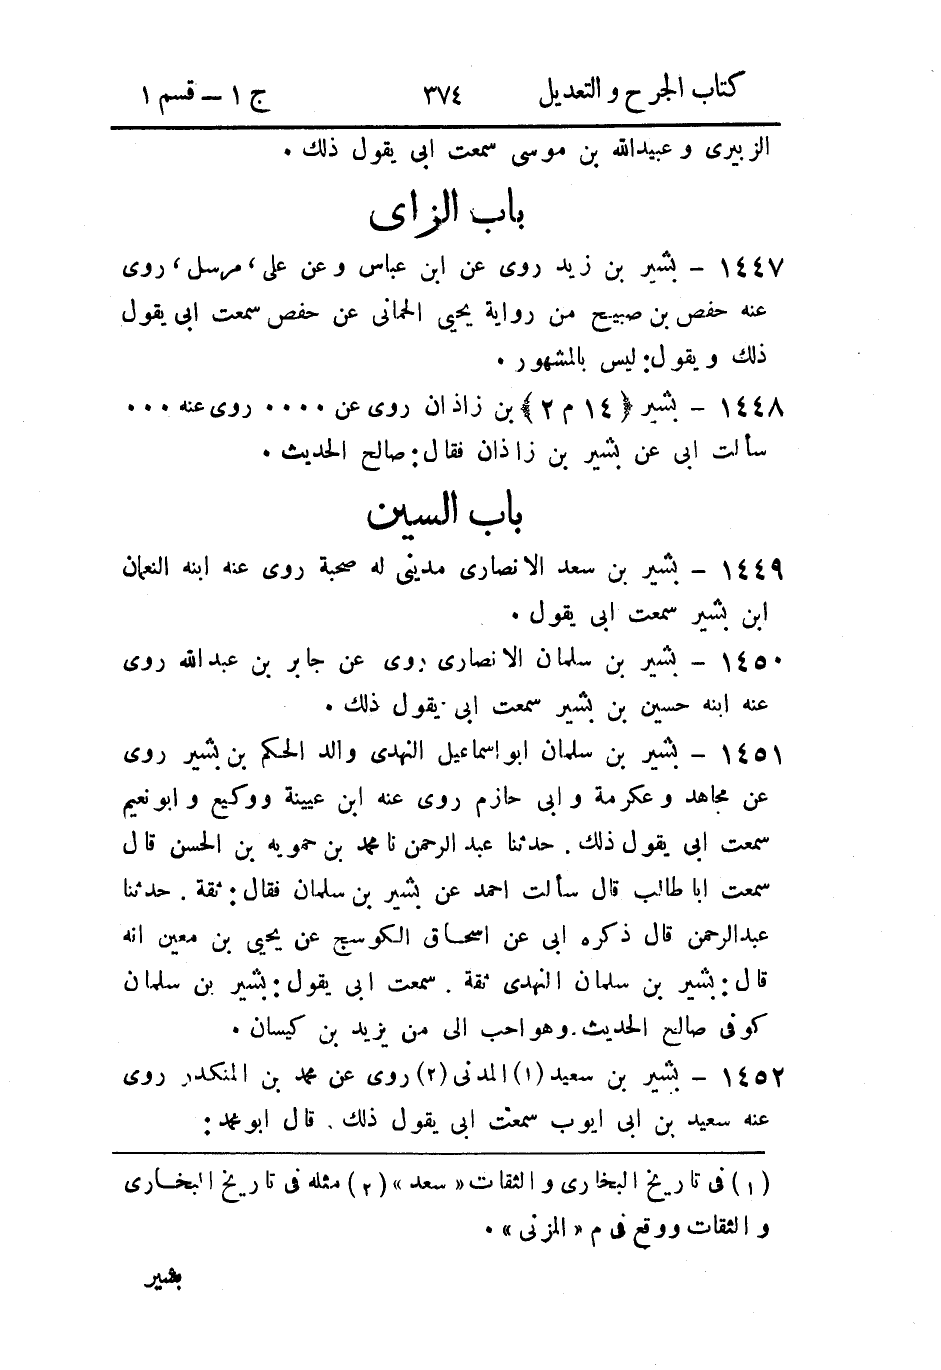 كتاب الجرح والتعديل ٣٧٤ ج ١ – قسم ١
الزبيرى وعبيدالله بن موسى سمعت ابى يقول ذلك .
باب الزاى
١٤٤٧ – بشير بن زيد روى عن ابن عباس وعن على ، مرسل ، روى
عنه حفص بن صبيح من رواية يحيى الحمانى عن حفص سمعت ابى يقول
ذلك ويقول : ليس بالمشهور .
١٤٤٨ – بشير ﴿ ١٤ م ٢ ﴾ بن زاذان روى عن .... روى عنه ...
سألت ابى عن بشير بن زاذان فقال : صالح الحديث .
باب السين
١٤٤٩ – بشير بن سعد الانصارى مدينى له صحبة روى عنه ابنه النعمان
ابن بشير سمعت ابى يقول .
١٤٥٠ – بشير بن سلمان الانصارى روى عن جابر بن عبدالله روى
عنه ابنه حسين بن بشير سمعت ابى يقول ذلك .
١٤٥١ – بشير بن سلمان ابو اسماعيل النهدى والد الحكم بن بشير روى
عن مجاهد وعكرمة وابى حازم روى عنه ابن عيينة ووكيع وابو نعيم
سمعت ابى يقول ذلك . حدثنا عبد الرحمن نا محمد بن حمويه بن الحسن قال
سمعت ابا طالب قال سألت احمد عن بشير بن سلمان فقال : ثقة . حدثنا
عبدالرحمن قال ذكره ابى عن اسحاق الكوسج عن يحيى بن معين انه
قال : بشير بن سلمان النهدى ثقة . سمعت ابى يقول : بشير بن سلمان
كوفى صالح الحديث . وهو احب الى من يزيد بن كيسان .
١٤٥٢ – بشير بن سعيد (١) المدنى (٢) روى عن محمد بن المنكدر روى
عنه سعيد بن ابى ايوب سمعت ابى يقول ذلك . قال ابو محمد :
(١) فى تاريخ البخارى والثقات « سعد » (٢) مثله فى تاريخ البخارى
والثقات ووقع فى م « المزنى » .
بشير